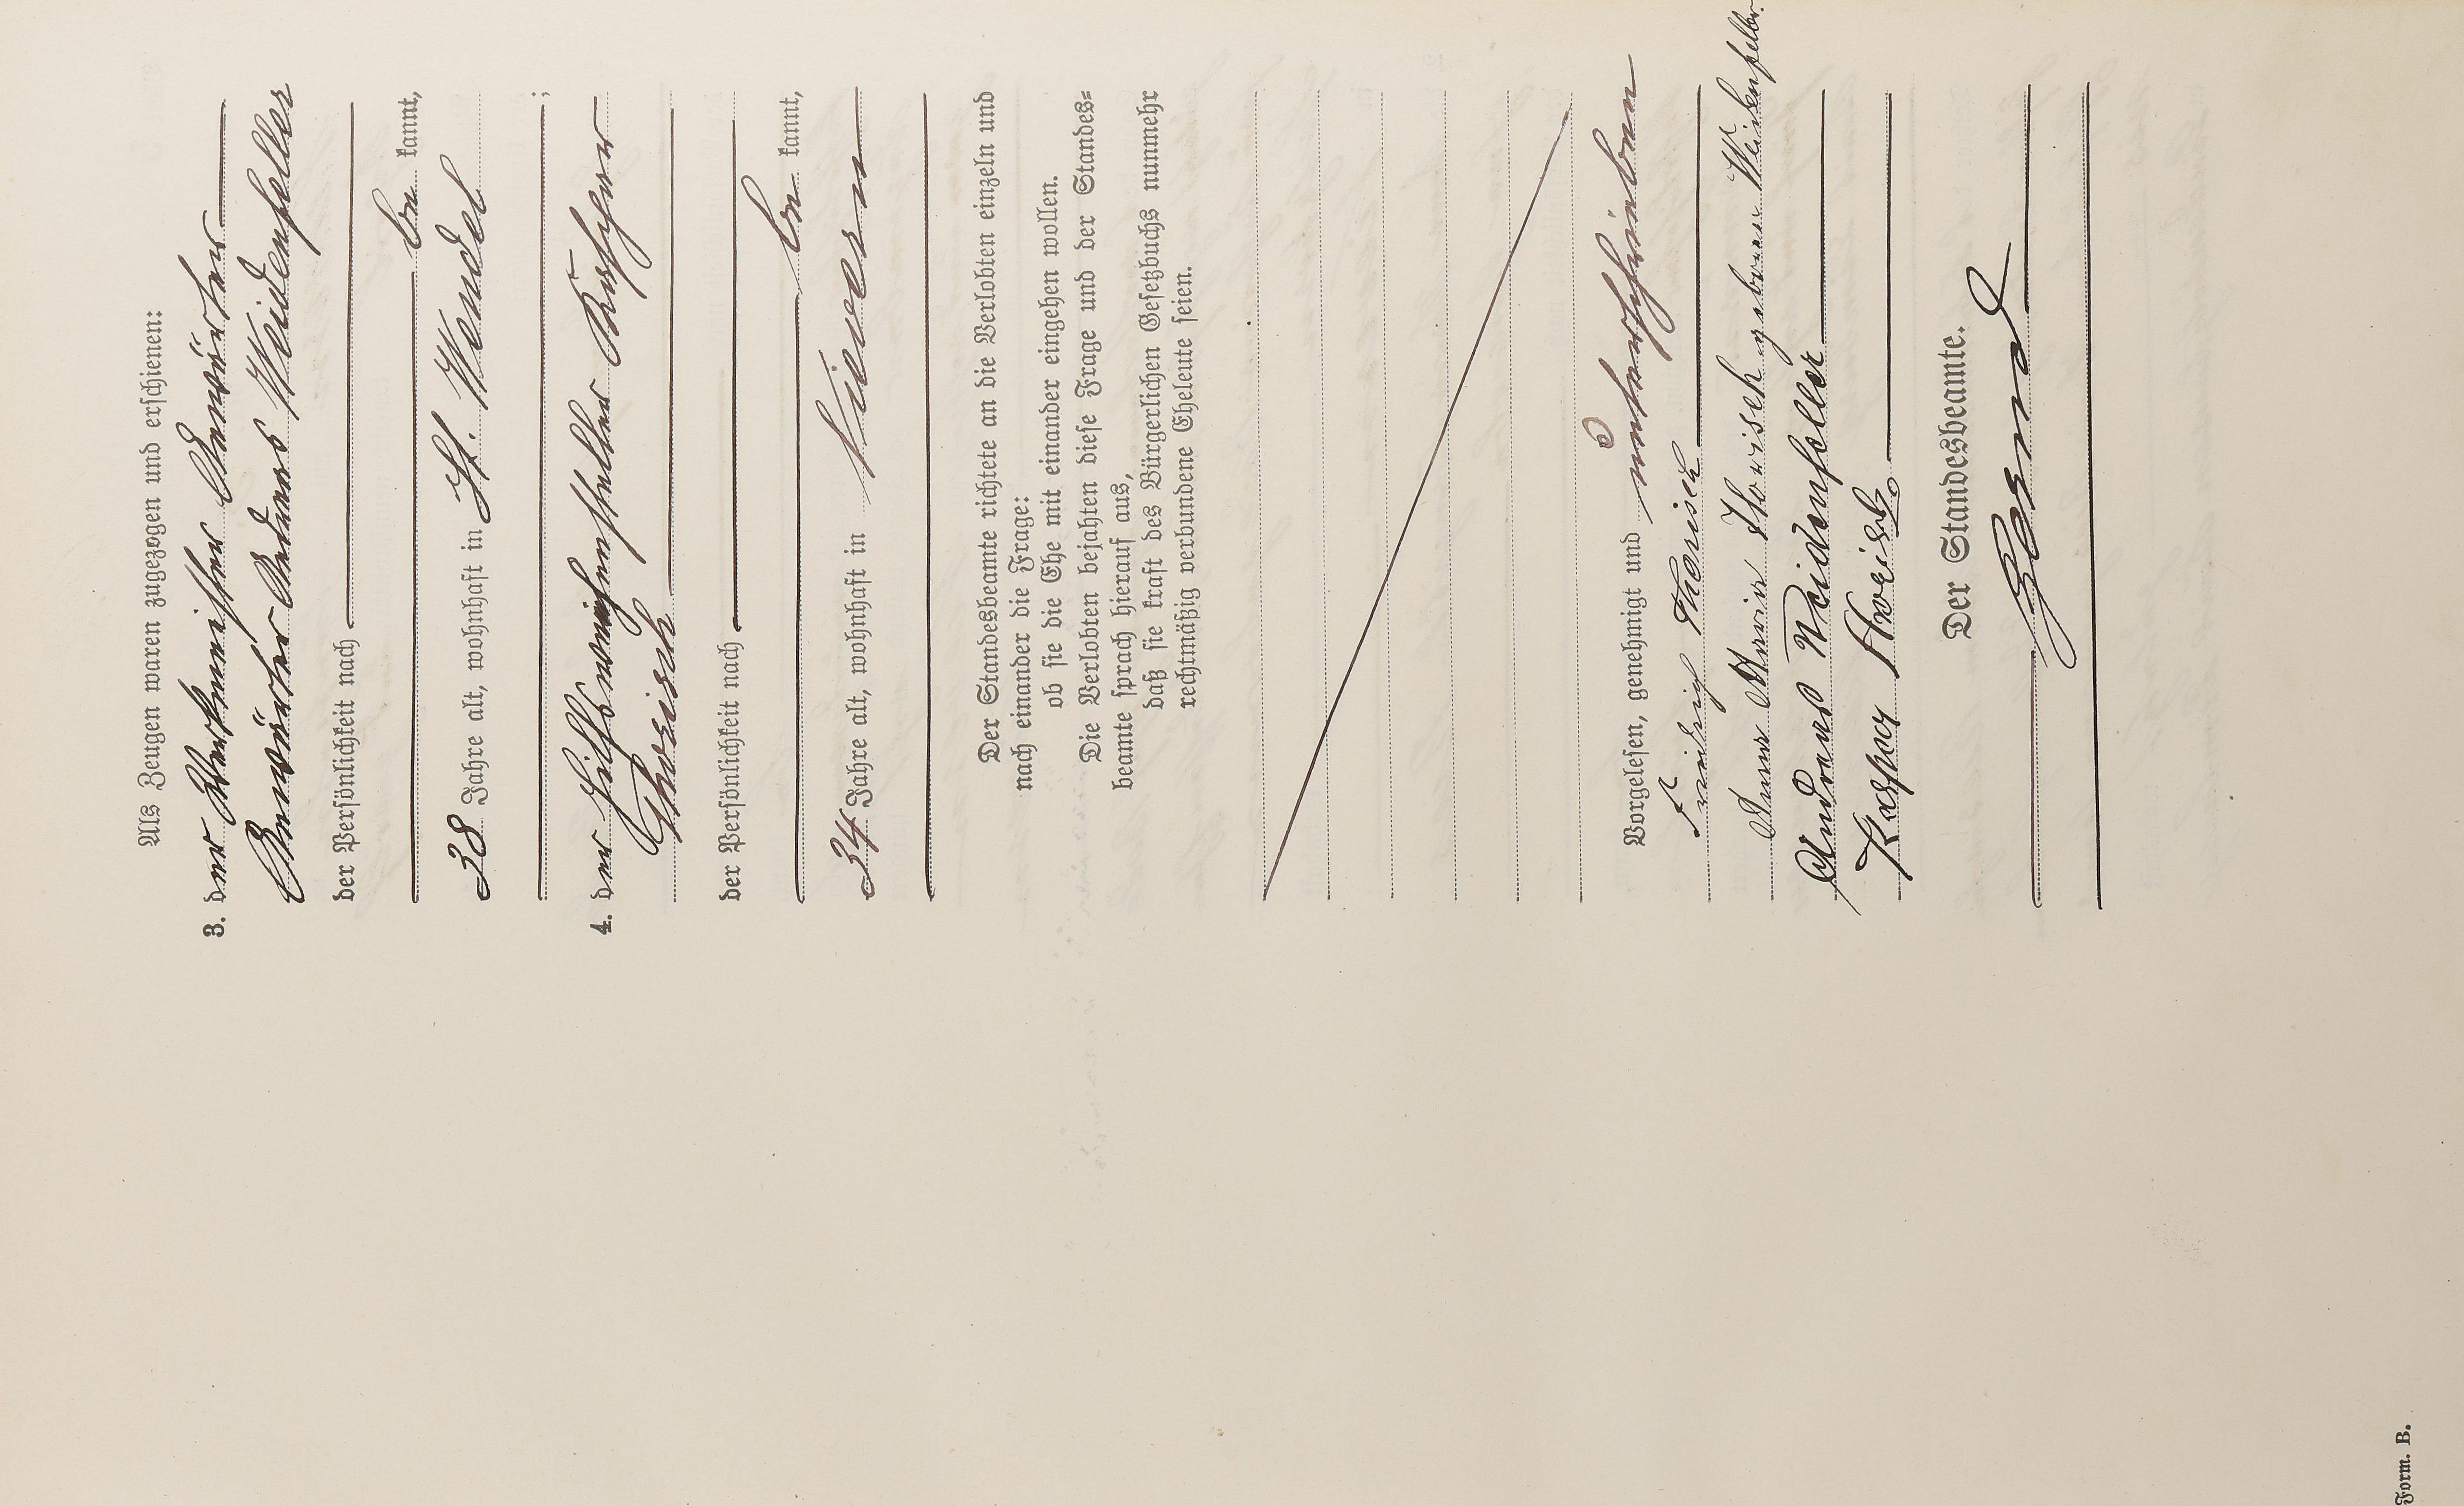 Als Zeugen waren zugezogen und erschienen:
3. der Werkmeister Anwärter
Anwärter Andreas Weidenfeller
der Persönlichkeit nach
be kannt,
38 Jahre alt, wohnhaft in St. Wendel
;
4. der Hilfsweichensteller Kaspar
Thorisch
der Persönlichkeit nach
be kannt,
34 Jahre alt, wohnhaft in Nievern
Der Standesbeamte richtete an die Verlobten einzeln und
nach einander die Frage:
ob sie die Ehe mit einander eingehen wollen.
Die Verlobten bejahten diese Frage und der Standes=
beamte sprach hierauf aus,
daß sie kraft des Bürgerlichen Gesetzbuchs nunmehr
rechtmäßig verbundene Eheleute seien.
Vorgelesen, genehmigt und unterschrieben
Friedrich Thorisch
Anna Maria Thorisch geborene Weidenfeller.
Andreas Weidenfeller
Kaspar
Der Standesbeamte.
Form. B.